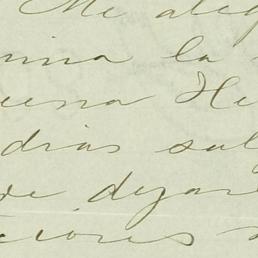 Me aleg
nina la
uena He
dias sal
de dejar
ciones s